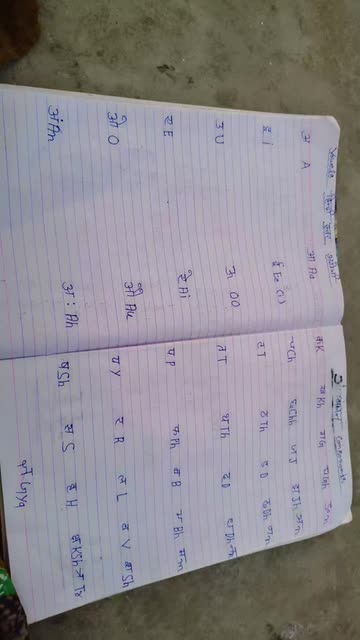 Vowels हिन्दी स्वर
अ A आ Aa
इ i ई Ee (i)
उ U ऊ oo
ए E ऐ Ai
ओ O औ Au
अं An अः Ah
Consonants
क K ख Kh ग G घ Gh ङ n
च Ch छ Chh ज J झ Jh ञ n
ट T ठ Th ड D ढ Dh ण n
त T थ Th द D ध Dh न n
प P फ Ph ब B भ Bh म m
य Y र R ल L व V श Sh
ष Sh स S ह H क्ष KSh त्र Tr
ज्ञ Gya